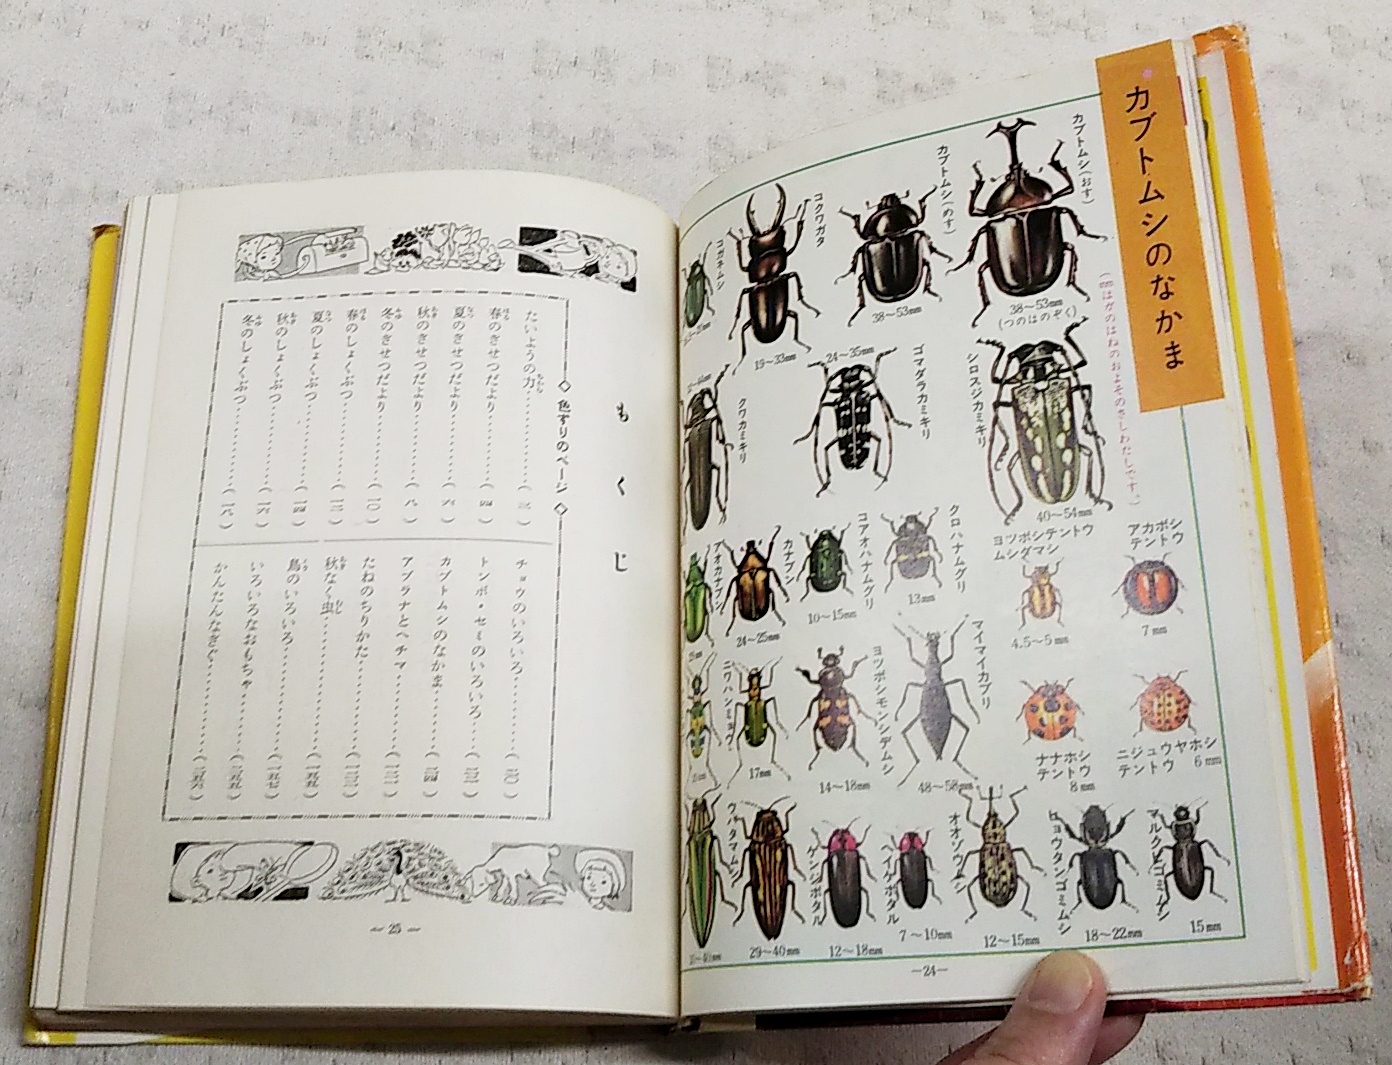 カブトムシのなかま
(mmはかのはねのおよそのさしわたしです。)
カブトムシ(おす)
38~53mm
(つのはのぞく)
カブトムシ(めす)
38~53mm
コクワガタ
19~33mm
コガネムシ
シロスジカミキリ
40~54mm
ゴマダラカミキリ
24~35mm
クワカミキリ
アカボシ
テントウ
7mm
ヨツボシテントウ
ムシダマシ
4.5~5mm
クロハナムグリ
13mm
コアオハナムグリ
10~15mm
カナブン
24~25mm
アオカナブン
25mm
ニジュウヤホシ
テントウ 6mm
ナナホシ
テントウ
8mm
マイマイカブリ
48~58mm
ヨツボシモンシデムシ
14~18mm
ニワハンミョウ
17mm
マルクビゴミムシ
15mm
ヒョウタンゴミムシ
18~22mm
オオゾウムシ
12~15mm
ヘイケボタル
7~10mm
ゲンジボタル
12~18mm
ウバタマムシ
29~40mm
30~40mm
—24—
もくじ
◇色ずりのページ◇
たいようの力……(二)
春のきせつだより……(四)
夏のきせつだより……(六)
秋のきせつだより……(八)
冬のきせつだより……(一〇)
春のしょくぶつ……(一二)
夏のしょくぶつ……(一四)
秋のしょくぶつ……(一六)
冬のしょくぶつ……(一八)
チョウのいろいろ……(二〇)
トンボ・セミのいろいろ……(二二)
カブトムシのなかま……(二四)
アブラナとヘチマ……(一三三)
たねのちりかた……(一三三)
秋なく虫……(一五五)
鳥のいろいろ……(一五七)
いろいろなおもちゃ……(二五五)
かんたんなきぐ……(二五六)
—25—